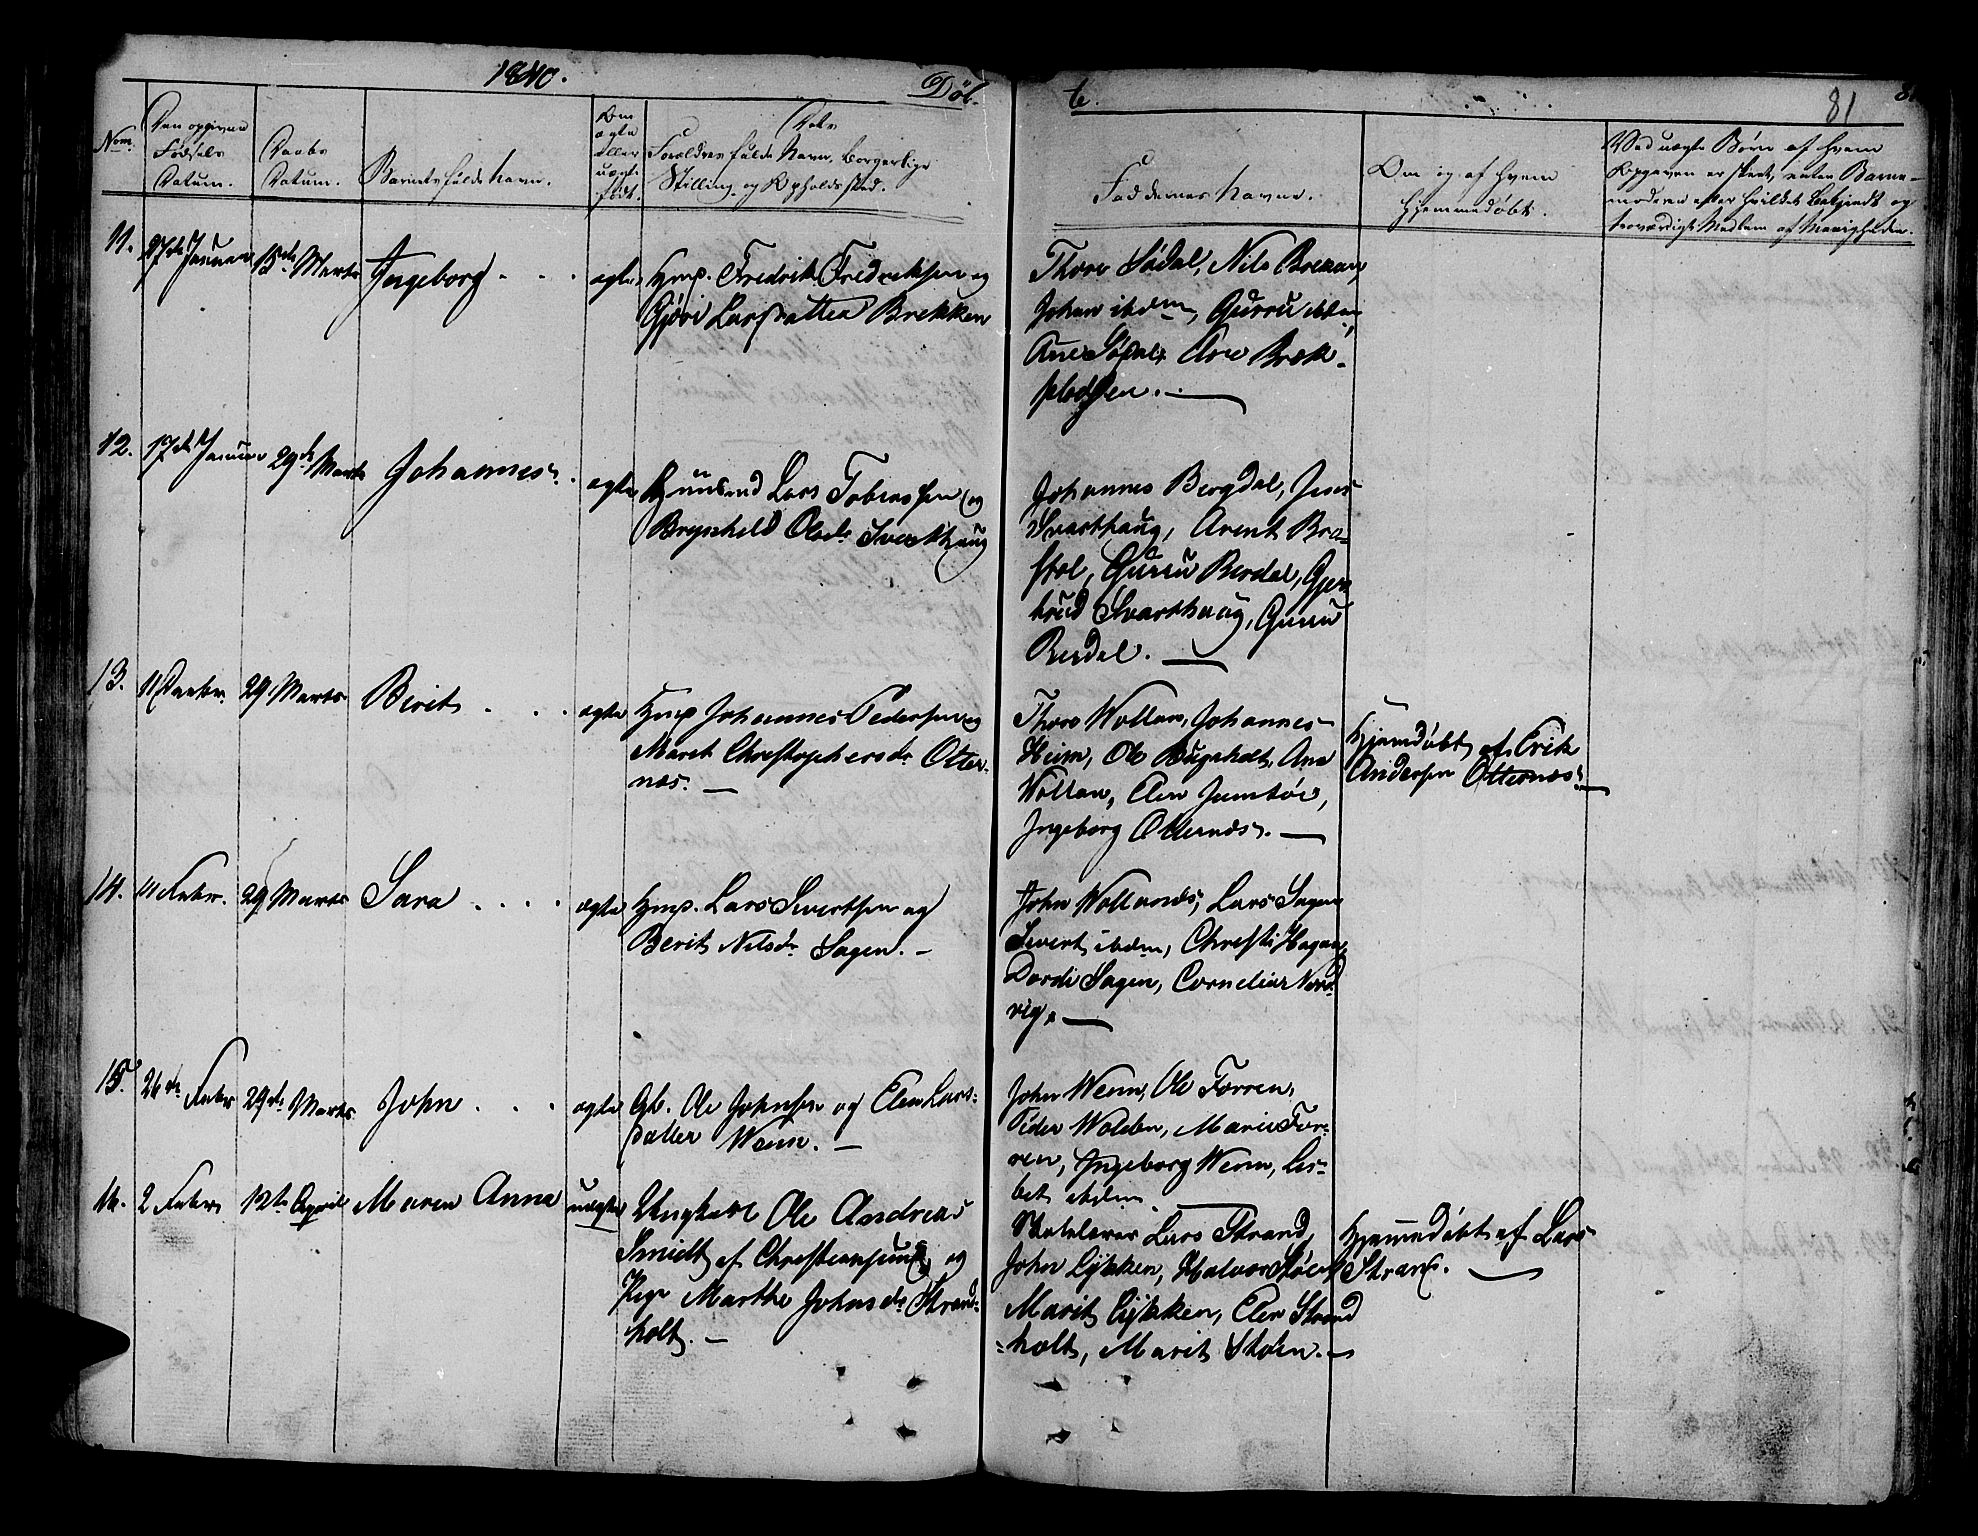 1840.
Døb.
t.
81
Nom.
Den opgivne
Fødsels
Datum.
Daabs
Datum.
Barnets fulde Navn.
Om
ægte
eller
uægte
født.
Forældres fulde Navn, borgerlige
Stilling og Opholdssted.
Faddernes Navne.
Om og af hvem
hjemmedøbt.
Ved uægte Børn af hvem
Opgaven er skeet, enten Barne-
moderen eller hvilket bekjendt og
troværdigt Medlem af Menigheden.
11.
27de Januar
15de Marts
Ingeborg
ægte
Hmd. Fredrik Fredriksen og
Gjøri Larsdatter Brekken
Thore Sødal, Nils Brekan,
Johan ibdm, Gurru ibdm,
Ane Sødal, Ane Brek-
pladsen.
12.
17de Januar
29de Marts
Johannes
ægte
Huusmd Lars Tobiassen og
Brynhild Olsdr Svarthaug
Johannes Bergdal, Jens
Svarthaug, Arent Bra-
stol, Gurru Berdal, Gjer
trud Svarthaug, Gurru
Berdal.
13.
11 Decbr.
29 Marts
Berit
ægte
Hmd Johannes Pedersen og
Maret Christophersdr Otter-
næs.
Thore Wollan, Johannes
Heim, Ole Bugeholt, Ane
Wollan, Elen Jemtøie,
Ingeborg Otternæs.
Hjemdøbt af Erik
Andersen Otternæs
14.
11 Febr.
29 Marts
Sara
ægte
Hmd. Lars Sivertsen og
Berit Nilsdr Sagen.
John Wollands, Lars Sagen
Sivert ibdm, Christi Hagan,
Dordi Sagen, Cornelius Nord
vig.
15.
26de Febr
29de Marts
John
ægte
Gb. Ole Johnsen og Elen Lars-
datter Wenn.
John Wenn, Ole Torren,
Peder Wolden, Marie Tor-
ren, Ingeborg Wenn, Lis-
bet ibdm.
16.
2 Febr.
12te April
Maren Anna
uægte
Ungkarl Ole Andreas
Smidt af Christiansund og
Pige Marthe Johnsdr Strand-
holt.
Skolelærer Lars Strand,
John Lykken, Halvor Støen
Marit Lykken, Elen Strand
holt, Marit Støen.
Hjemmedøbt af Lars
Strand.